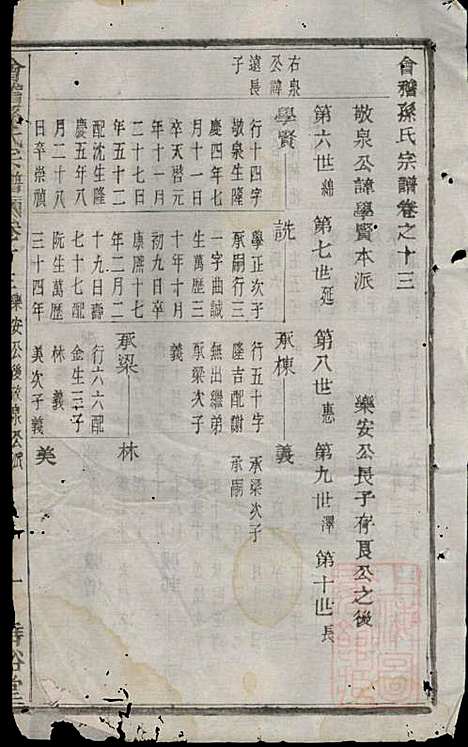 會稽孫氏宗譜卷之十三
敬泉公諱學賢本派
樂安公長子存良公之後
第六世綿 第七世延 第八世惠 第九世澤 第十世長
右泉
公諱
遠長
子
學賢
行十四字
敬泉生隆
慶四年七
月十一日
卒天啓元
年十一月
二十七日
年五十二
配沈生隆
慶五年八
月二十八
日卒崇禎
詵
學正次子
承嗣行三
一字曲誠
生萬歷三
十年十月
初九日卒
康熙十七
年二月二
十九日壽
七十七配
阮生萬歷
三十四年
承棟
行五十字
隆吉配謝
無出繼弟
承梁次子
義
承梁
行六六配
金生三子
林 義
美次子義
義
承梁次子
承嗣
林
美
會稽孫氏宗譜
樂安公後敬泉公派
一